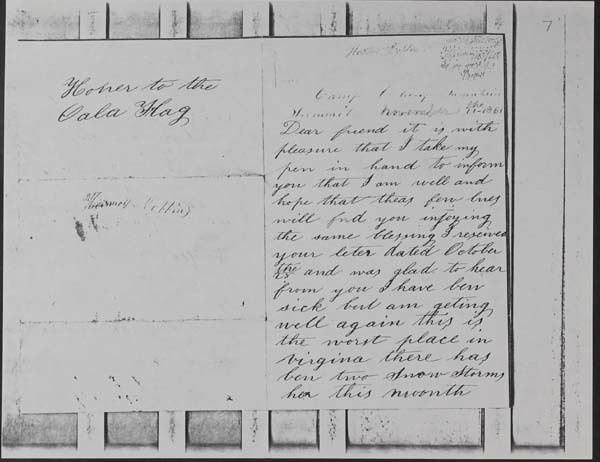 7
Honer to the
Oala Flag
Camp
November the 11 1861
Dear friend it is with
pleasure that I take my
pen in hand to inform
you that I am well and
hope that theas few lines
will fnd you injoying
the same blessing I received
your leter dated October
the and was glad to hear
from you I have ben
sick but am geting
well again this is
the worst place in
virgina there has
ben two Snow Storms
her this moonth